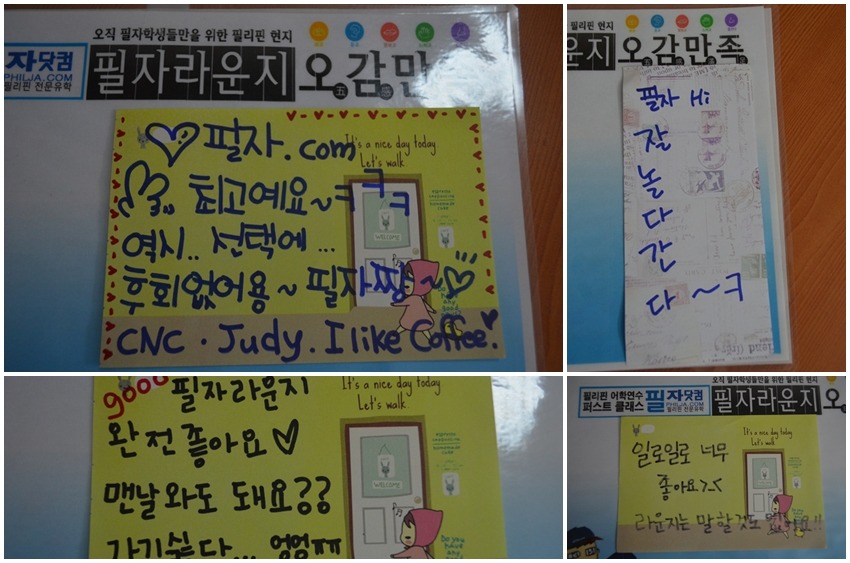 오직 필자학생들만을 위한 필리핀 현지
필자닷컴
PHILJA.COM
필리핀 전문유학
필자라운지 오감만
五 感
필자.com
It's a nice day today.
Let's walk.
최고예요~ㅋㅋㅋ
역시.. 선택에...
후회없어용~ 필자짱~
WELCOME
CNC. Judy. I like Coffee.
필리핀 현지
운지 오감만족
필자 Hi
잘
놀
다
간
다~ㅋ
good 필자라운지
It's a nice day today.
Let's walk.
완전좋아요♡
맨날와도 돼요??
WELCOME
가기싫다... 엉엉ㅠㅠ
Do you
have any
오직 필자학생들만을 위한 필리핀 현지
필리핀 어학연수
퍼스트 클래스
필자닷컴
PHILJA.COM
필리핀 전문유학
필자라운지 오
It's a nice day today.
Let's walk.
일로일로 너무
좋아요>.<
라운지는 말할것도 없구요!!